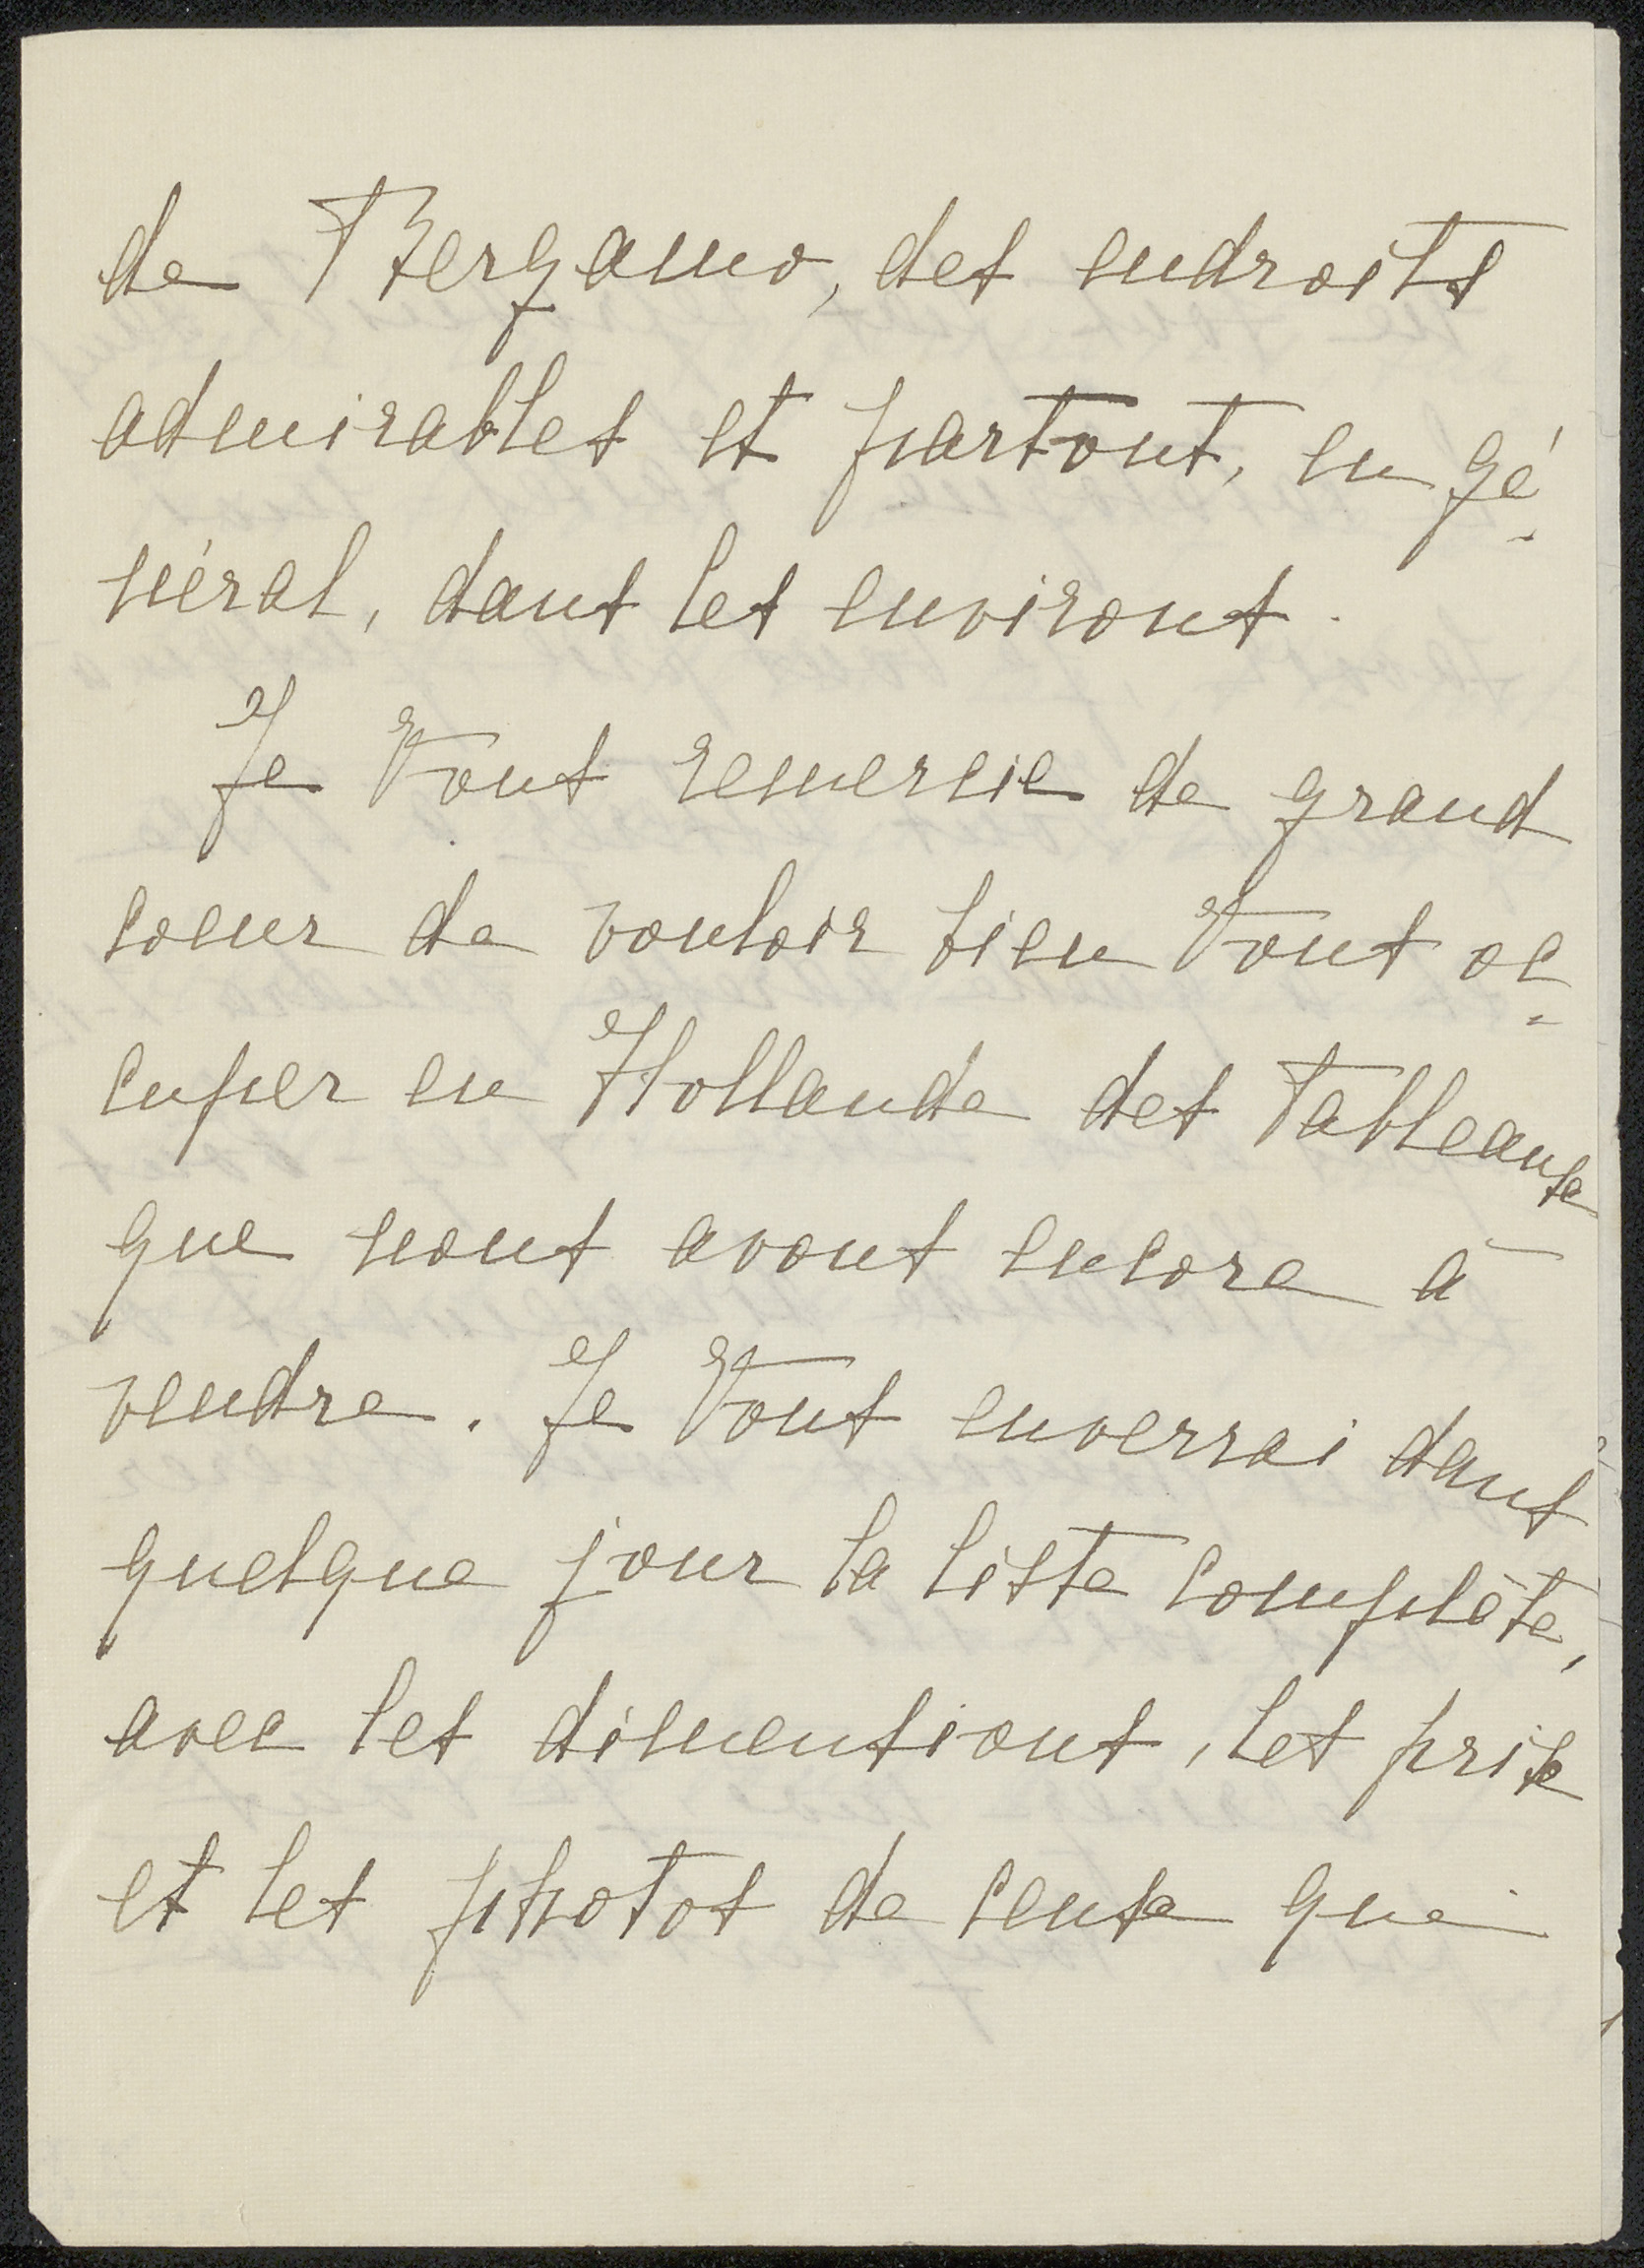 de Bergamo, des endroits
admirables et partout, en gé-
néral, dans les environs.
Je Vous remercie de grand
coeur de vouloir bien Vous oc=
cuper en Hollande des Tableaux
que nous avons encore à
vendre. Je Vous enverrai dans
quelque jour la liste complète,
avec les dimensions, les prix
et les photos de ceux que